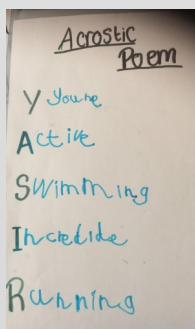 Acrostic
Poem
Y Youre
Active
Swimming
Incredide
Running